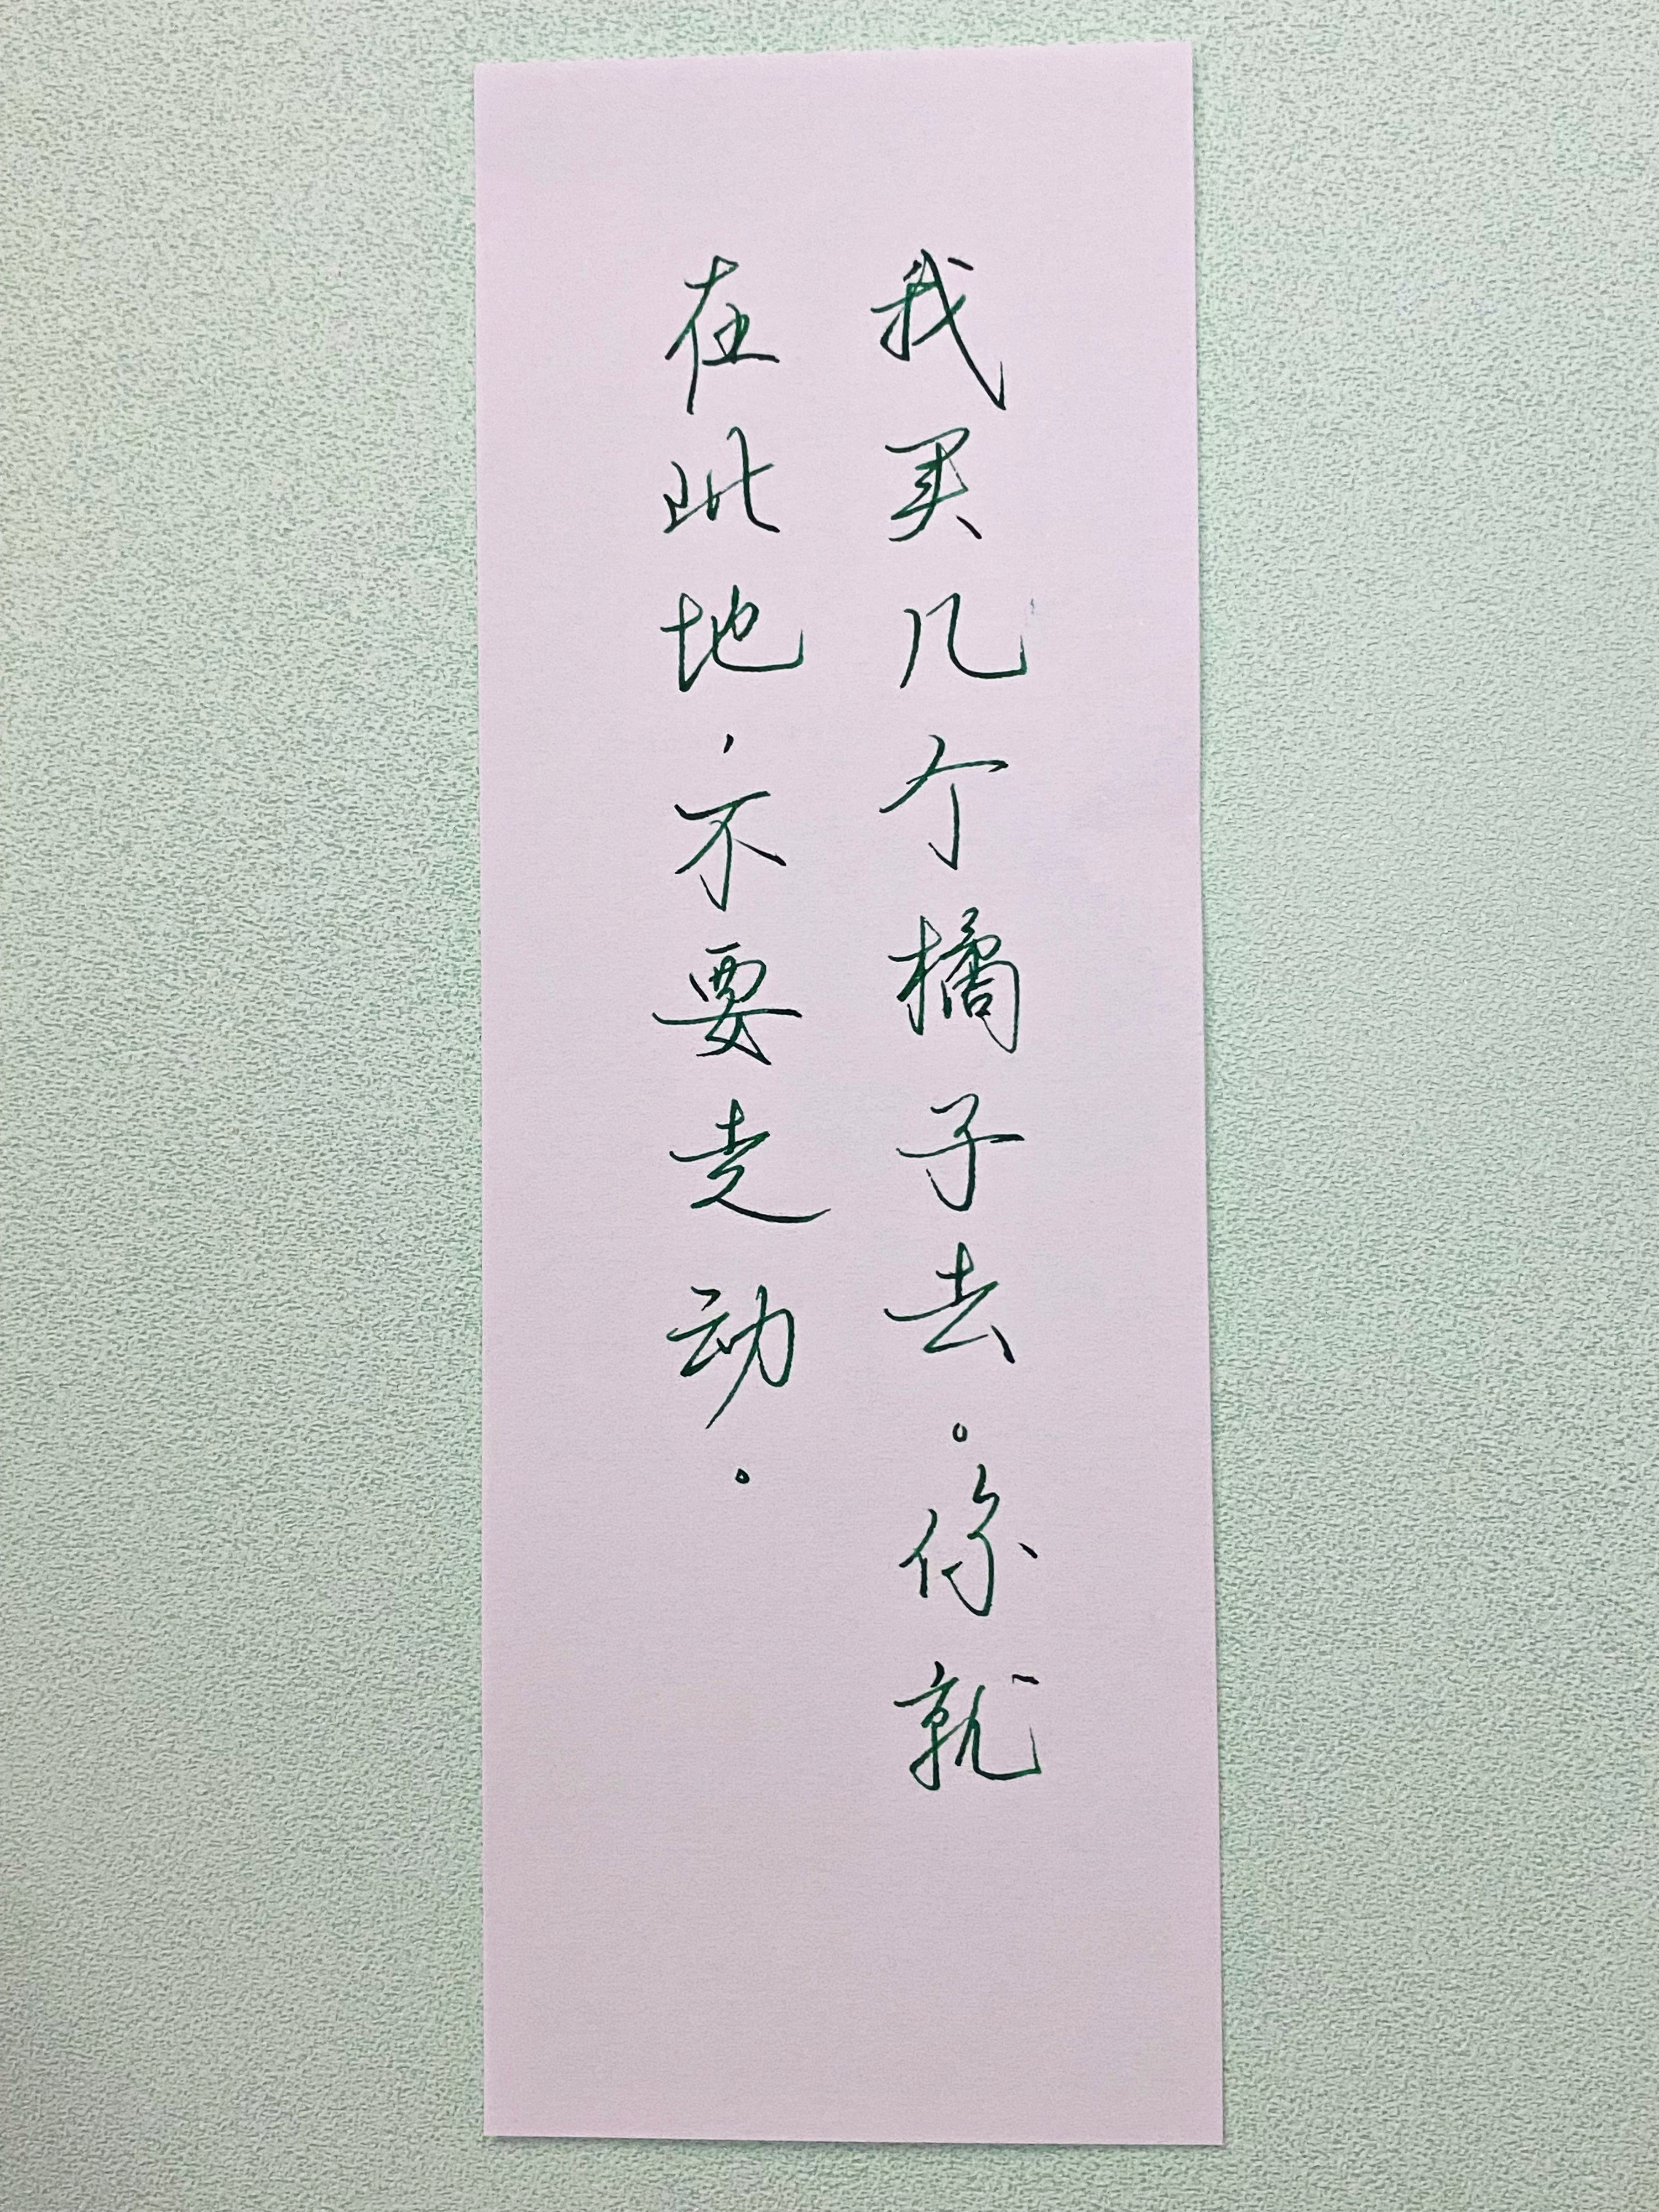 我买几个橘子去。你就
在此地，不要走动。